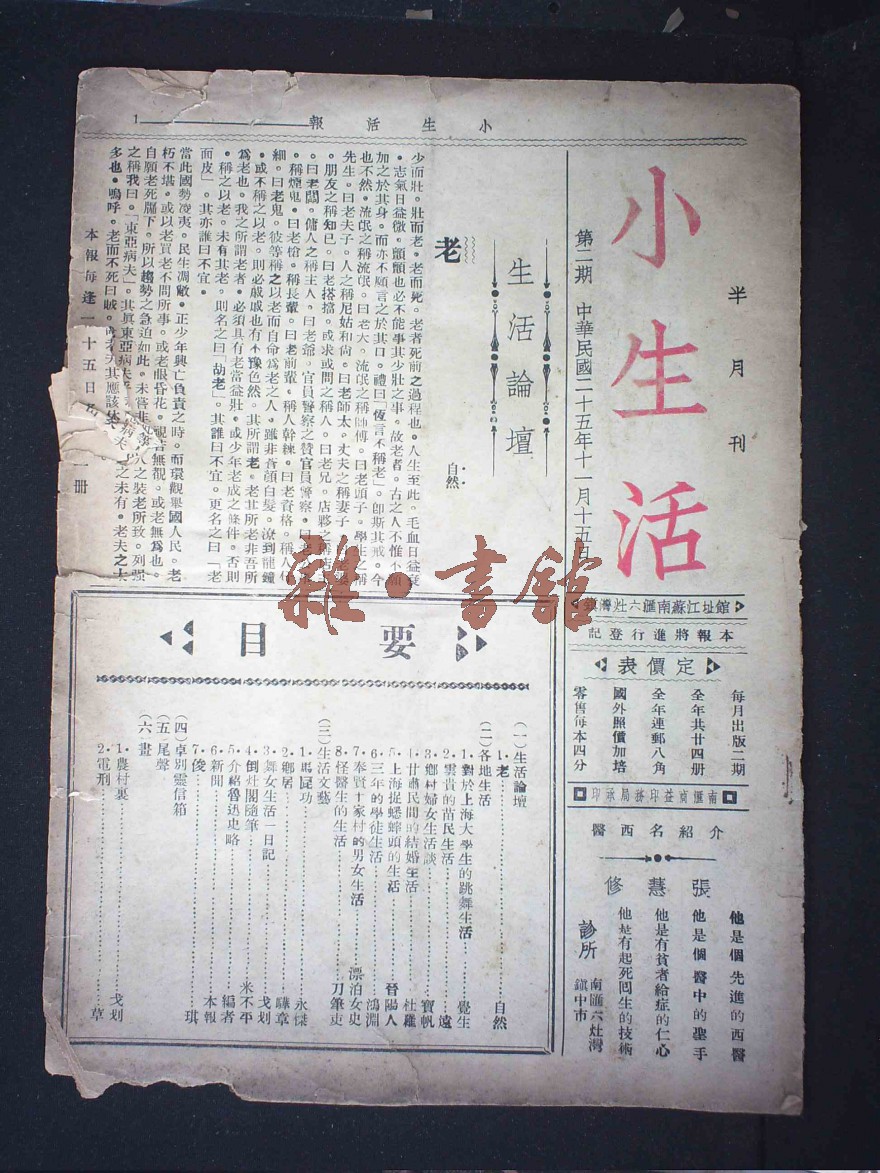 小生活報
1
半月刊
小生活
第二期 中華民國二十五年十一月十五日
館址江蘇南匯六灶灣鎮
本報將進行登記
定價表
每月出版二期
全年共廿四册
全年連郵八角
國外照價加培
零售每本四分
南匯貞益印務局承印
介紹名西醫
張慧修
他是個先進的西醫
他是個醫中的聖手
他是有貧者給症的仁心
他是有起死囘生的技術
診所
南匯六灶灣
鎮中市
生活論壇
老
自然
少而壯。壯而老。老而死。老者死前之過程也。人生至此。毛血日益衰
。志氣日益微。顫顫也必不能事其少壯之事。故老者。古之人不惟不願
加之於其身。而亦不願言之於其口。禮曰「恆言不稱老」。卽斯其戒。今
也不然。流氓之稱流氓。曰老大。流氓之稱師傅。曰老頭子。學生之稱
先生。曰老夫子。人之稱尼姑和尙。曰老師太。丈夫之稱妻子
。朋友之稱知已。曰老搭擋。或求或問之稱人。曰老兄。店夥之稱店主
。曰老闆。傭人之稱主人。曰老爺。官員警察之贊官員警察。曰老
。稱煙鬼。曰老槍。稱長輩。曰老前輩。稱人幹練。曰老資格。稱人
細。曰老鬼。彼等稱之以老而自命爲老之人。雖非蒼顏白髮。潦到龍鐘
。或不稱之以老。則必戚戚也有不豫色然。其所謂老。老其所老非吾所
爲老也。我之所謂老者。必須具有老當益壯。或少年老成之條件。否則
。稱之以老。未有其老。則名之曰「胡老」。其誰曰不宜。更名之曰「老
面皮」。其亦誰曰不宜。
當此國勢凌夷。民生凋敝。正少年興亡負責之時。而環觀舉國人民。老
朽不堪。或以老賣老不問所事。或老眼昏花。視若無覩。或老無爲也。
自願老死牖下。所以趨勢之急迫如此。未嘗非 人之裝老所致。列强
之稱我曰。「東亞病夫」。其眞東亞病夫 之未有。老夫之大
多也。嗚呼。老而不死曰賊。 夫其應該
本報每逢一十五日出 一册
要目
(一)生活論壇
1.老……自然
(二)各地生活
1.對於上海大學生的跳舞生活……覺生
2.雲貴的苗民生活……遠
3.鄉村婦女生活談……寶帆
4.甘肅民間的結婚生活……杜羅
5.上海捉蟋蟀頭的生活……晉陽人
6.三年的學徒生活……鴻淵
7.奉賢十家村的男女生活……漂泊女史
8.怪醫生的生活……刀筆吏
(三)生活文藝
1.馬屁功……永傑
2.鄉居……驊章
3.舞女生活一日記……戈划
4.倒灶閣隨筆……米不平
5.介紹魯迅史略……編者
6.新聞……本報
7.俊……琪
(四)卓別靈信箱
(五)尾聲
(六)畫
1.農村裏……戈划
2.電刑……草
雜·書館